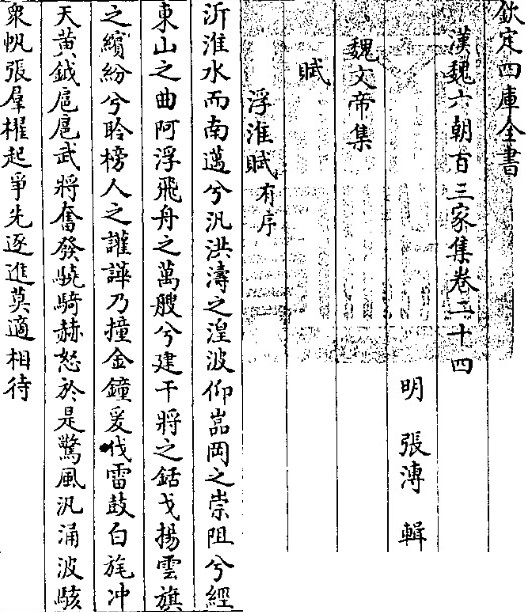 欽定四庫全書
漢魏六朝百三家集卷二十四
明 張溥 輯
魏文帝集
賦
浮淮賦有序
沂淮水而南邁兮汎洪濤之湟波仰嵓岡之崇阻兮經
東山之曲阿浮飛舟之萬艘兮建干將之銛戈揚雲旗
之繽紛兮聆榜人之讙譁乃撞金鐘爰伐雷鼓白旄冲
天黄鉞扈扈武將奮發驍騎赫怒於是驚風汎涌波駭
衆帆張羣櫂起爭先逐進莫適相待